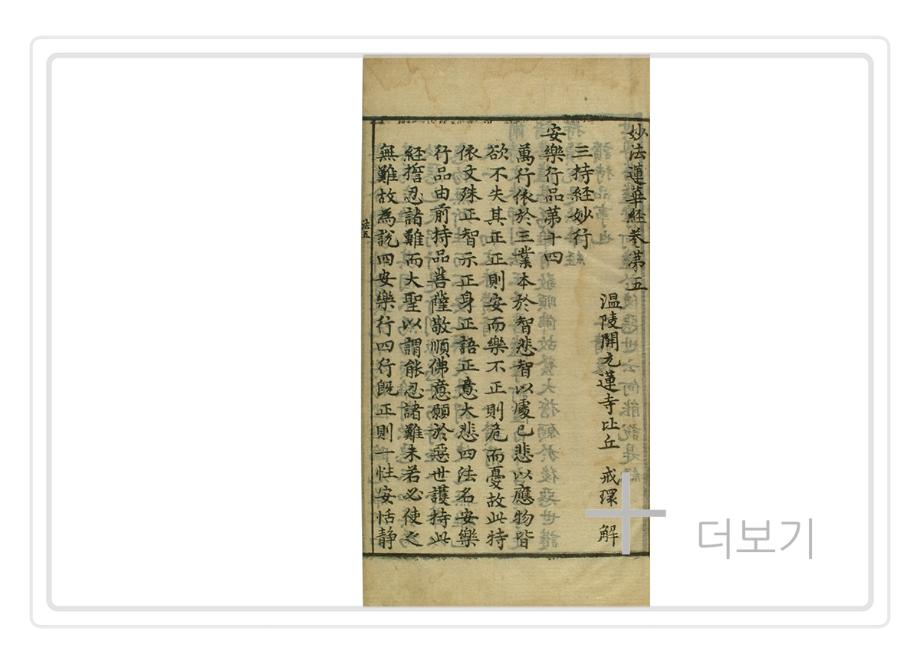 妙法蓮華經卷第五
温陵開元蓮寺比丘 戒環 解
三持經妙行
安樂行品第十四
萬行依於三業本於智悲智以處已悲以應物皆
欲不失其正正則安而樂不正則危而憂故此特
依文殊正智示正身正語正意大悲四法名安樂
行品由前持品菩薩敬順佛意願於惡世護持此
經擔忍諸難而大聖以謂能忍諸難未若必使之
無難故為說四安樂行四行旣正則一性安恬静
法五
더보기